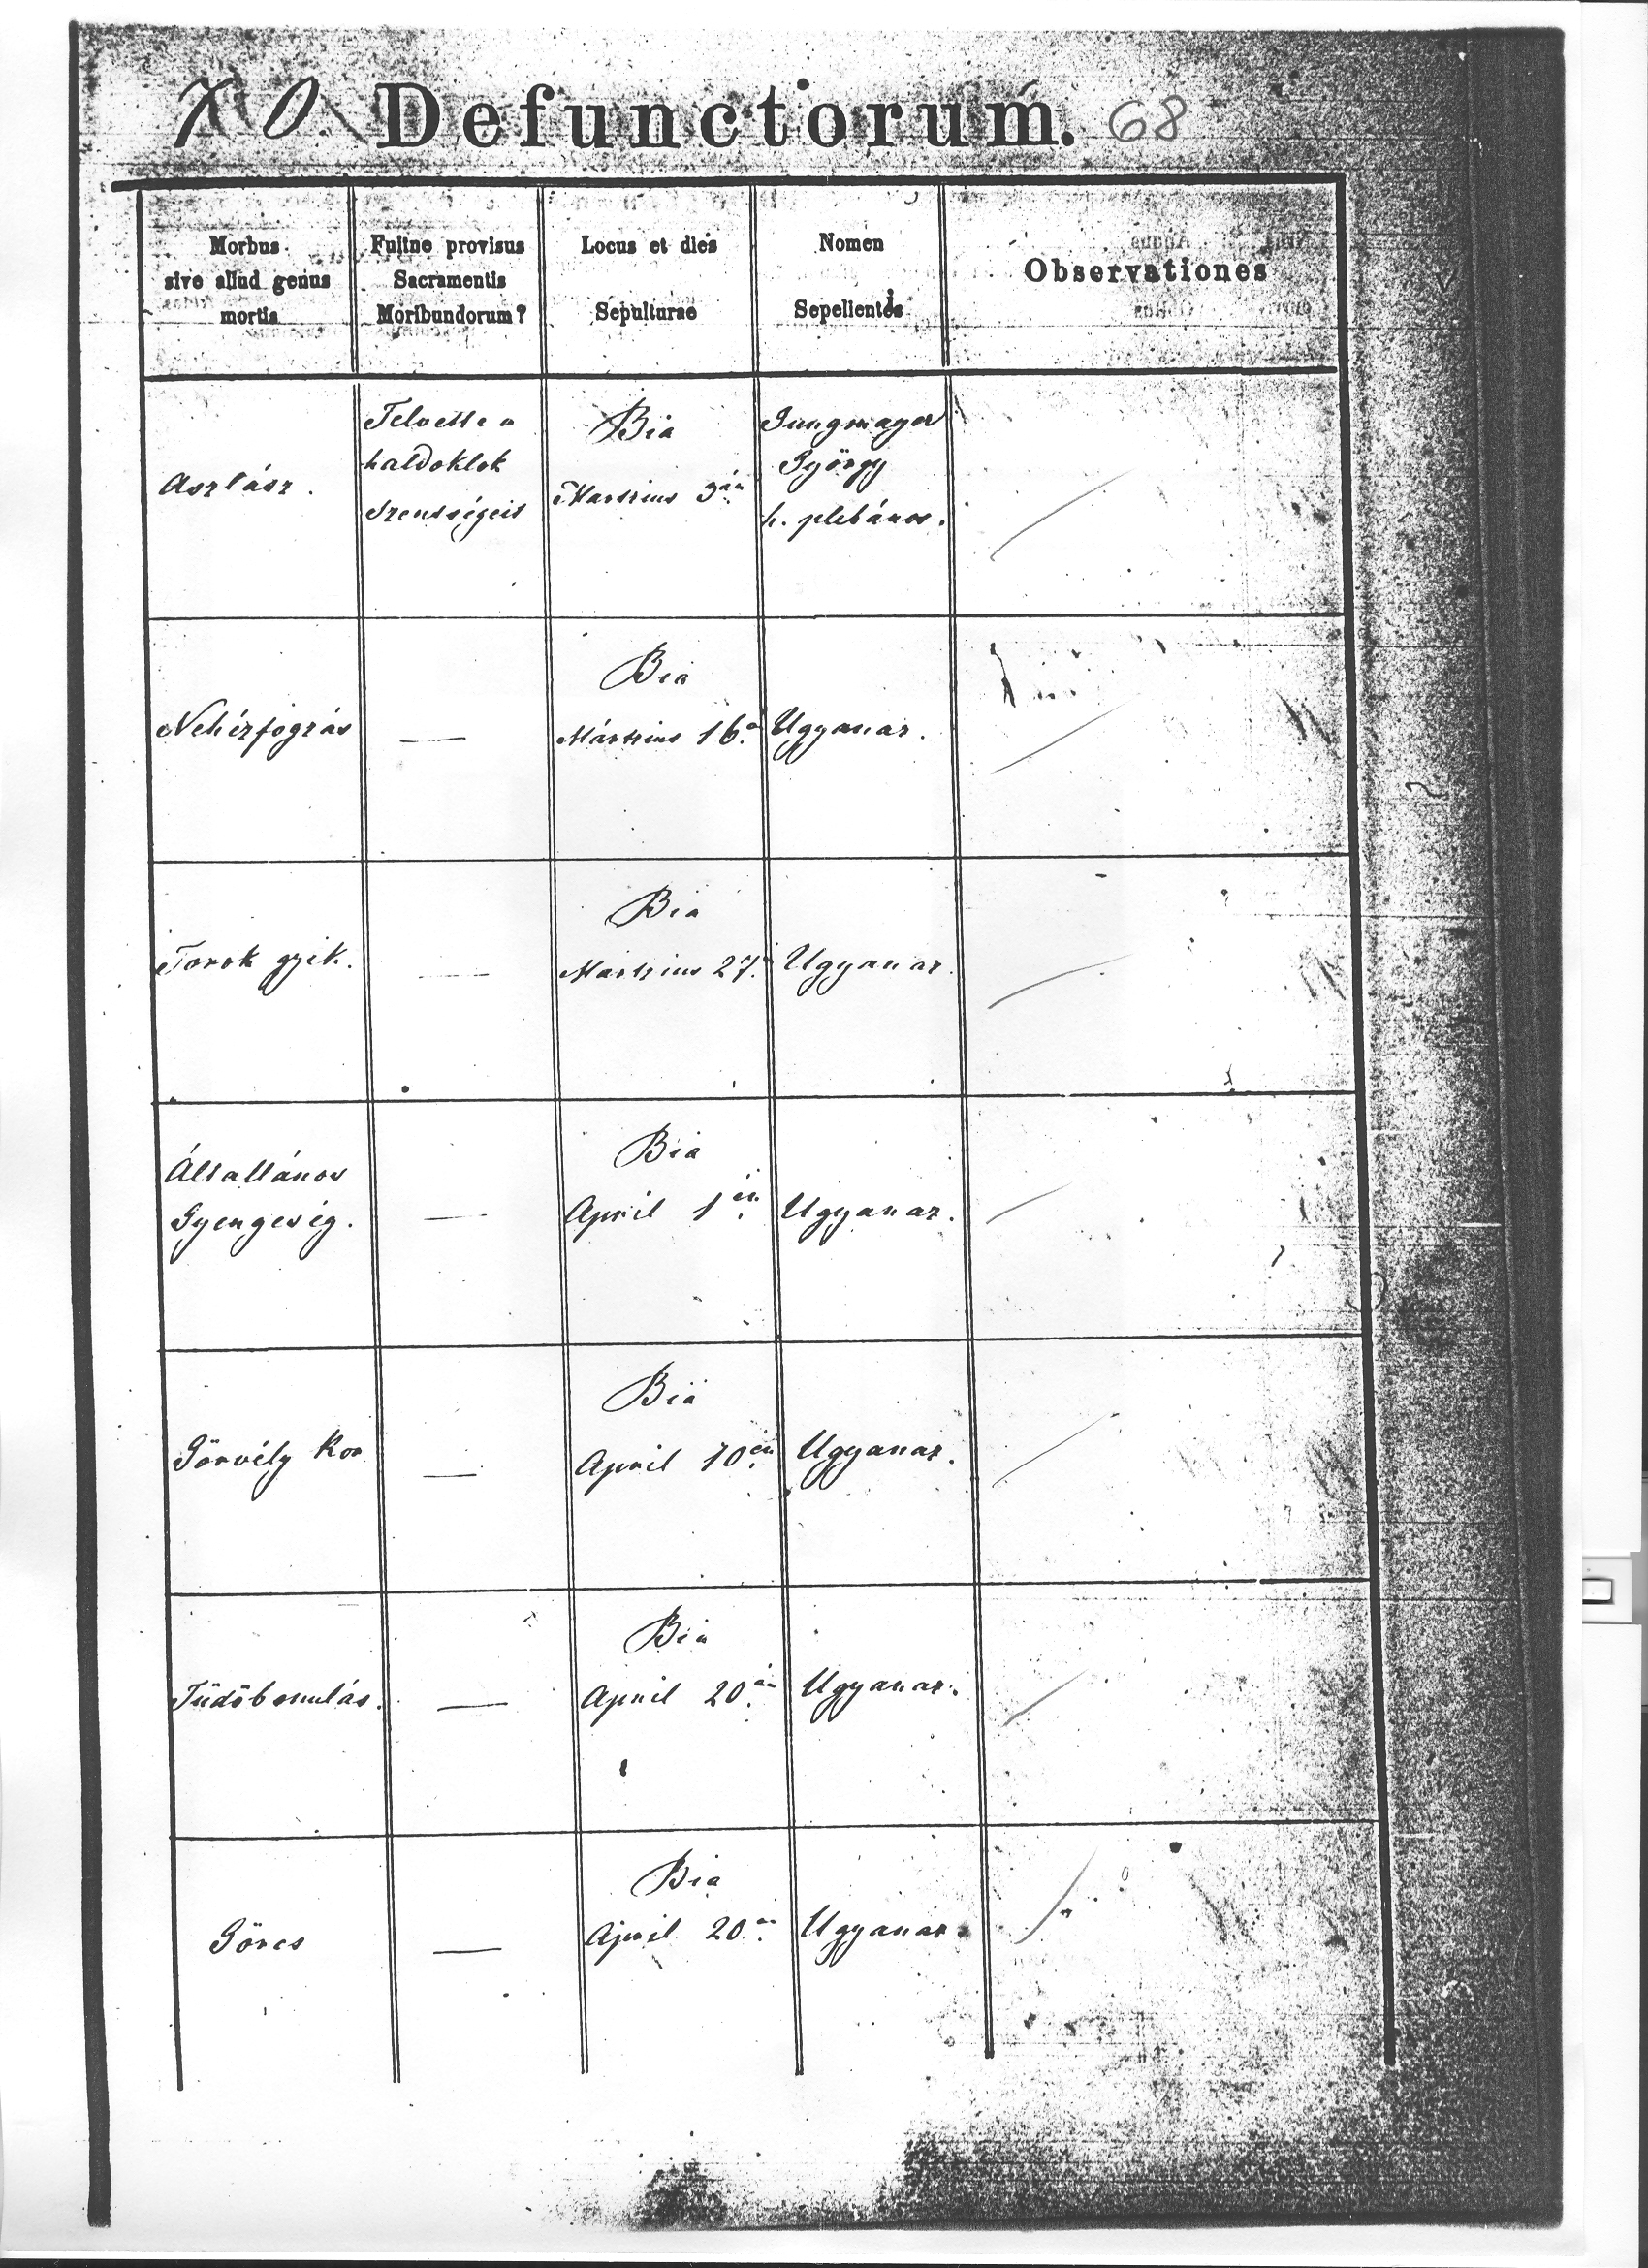 70. Defunctorum. 68
Morbus
sive aliud genus
mortis
Fuitne provisus
Sacramentis
Moribundorum?
Locus et dies
Sepulturae
Nomen
Sepelientis
Observationes
Aszlász.
Felvette a
haldoklok
szentségeit
Bia
Martzius 3án
Jungmayer
György
h. plebános.
Nehézfogzás
—
Bia
Mártzius 16.a
Ugyanaz.
Torok gyik.
—
Bia
Martzius 27.
Ugyanaz.
Általlános
Gyengeség.
—
Bia
April 1én
Ugyanaz.
Görvély Kor
—
Bia
April 10én
Ugyanaz.
Tüdöbomulás.
—
Bia
April 20án
Ugyanaz.
Görcs
—
Bia
April 20án
Ugyanaz.